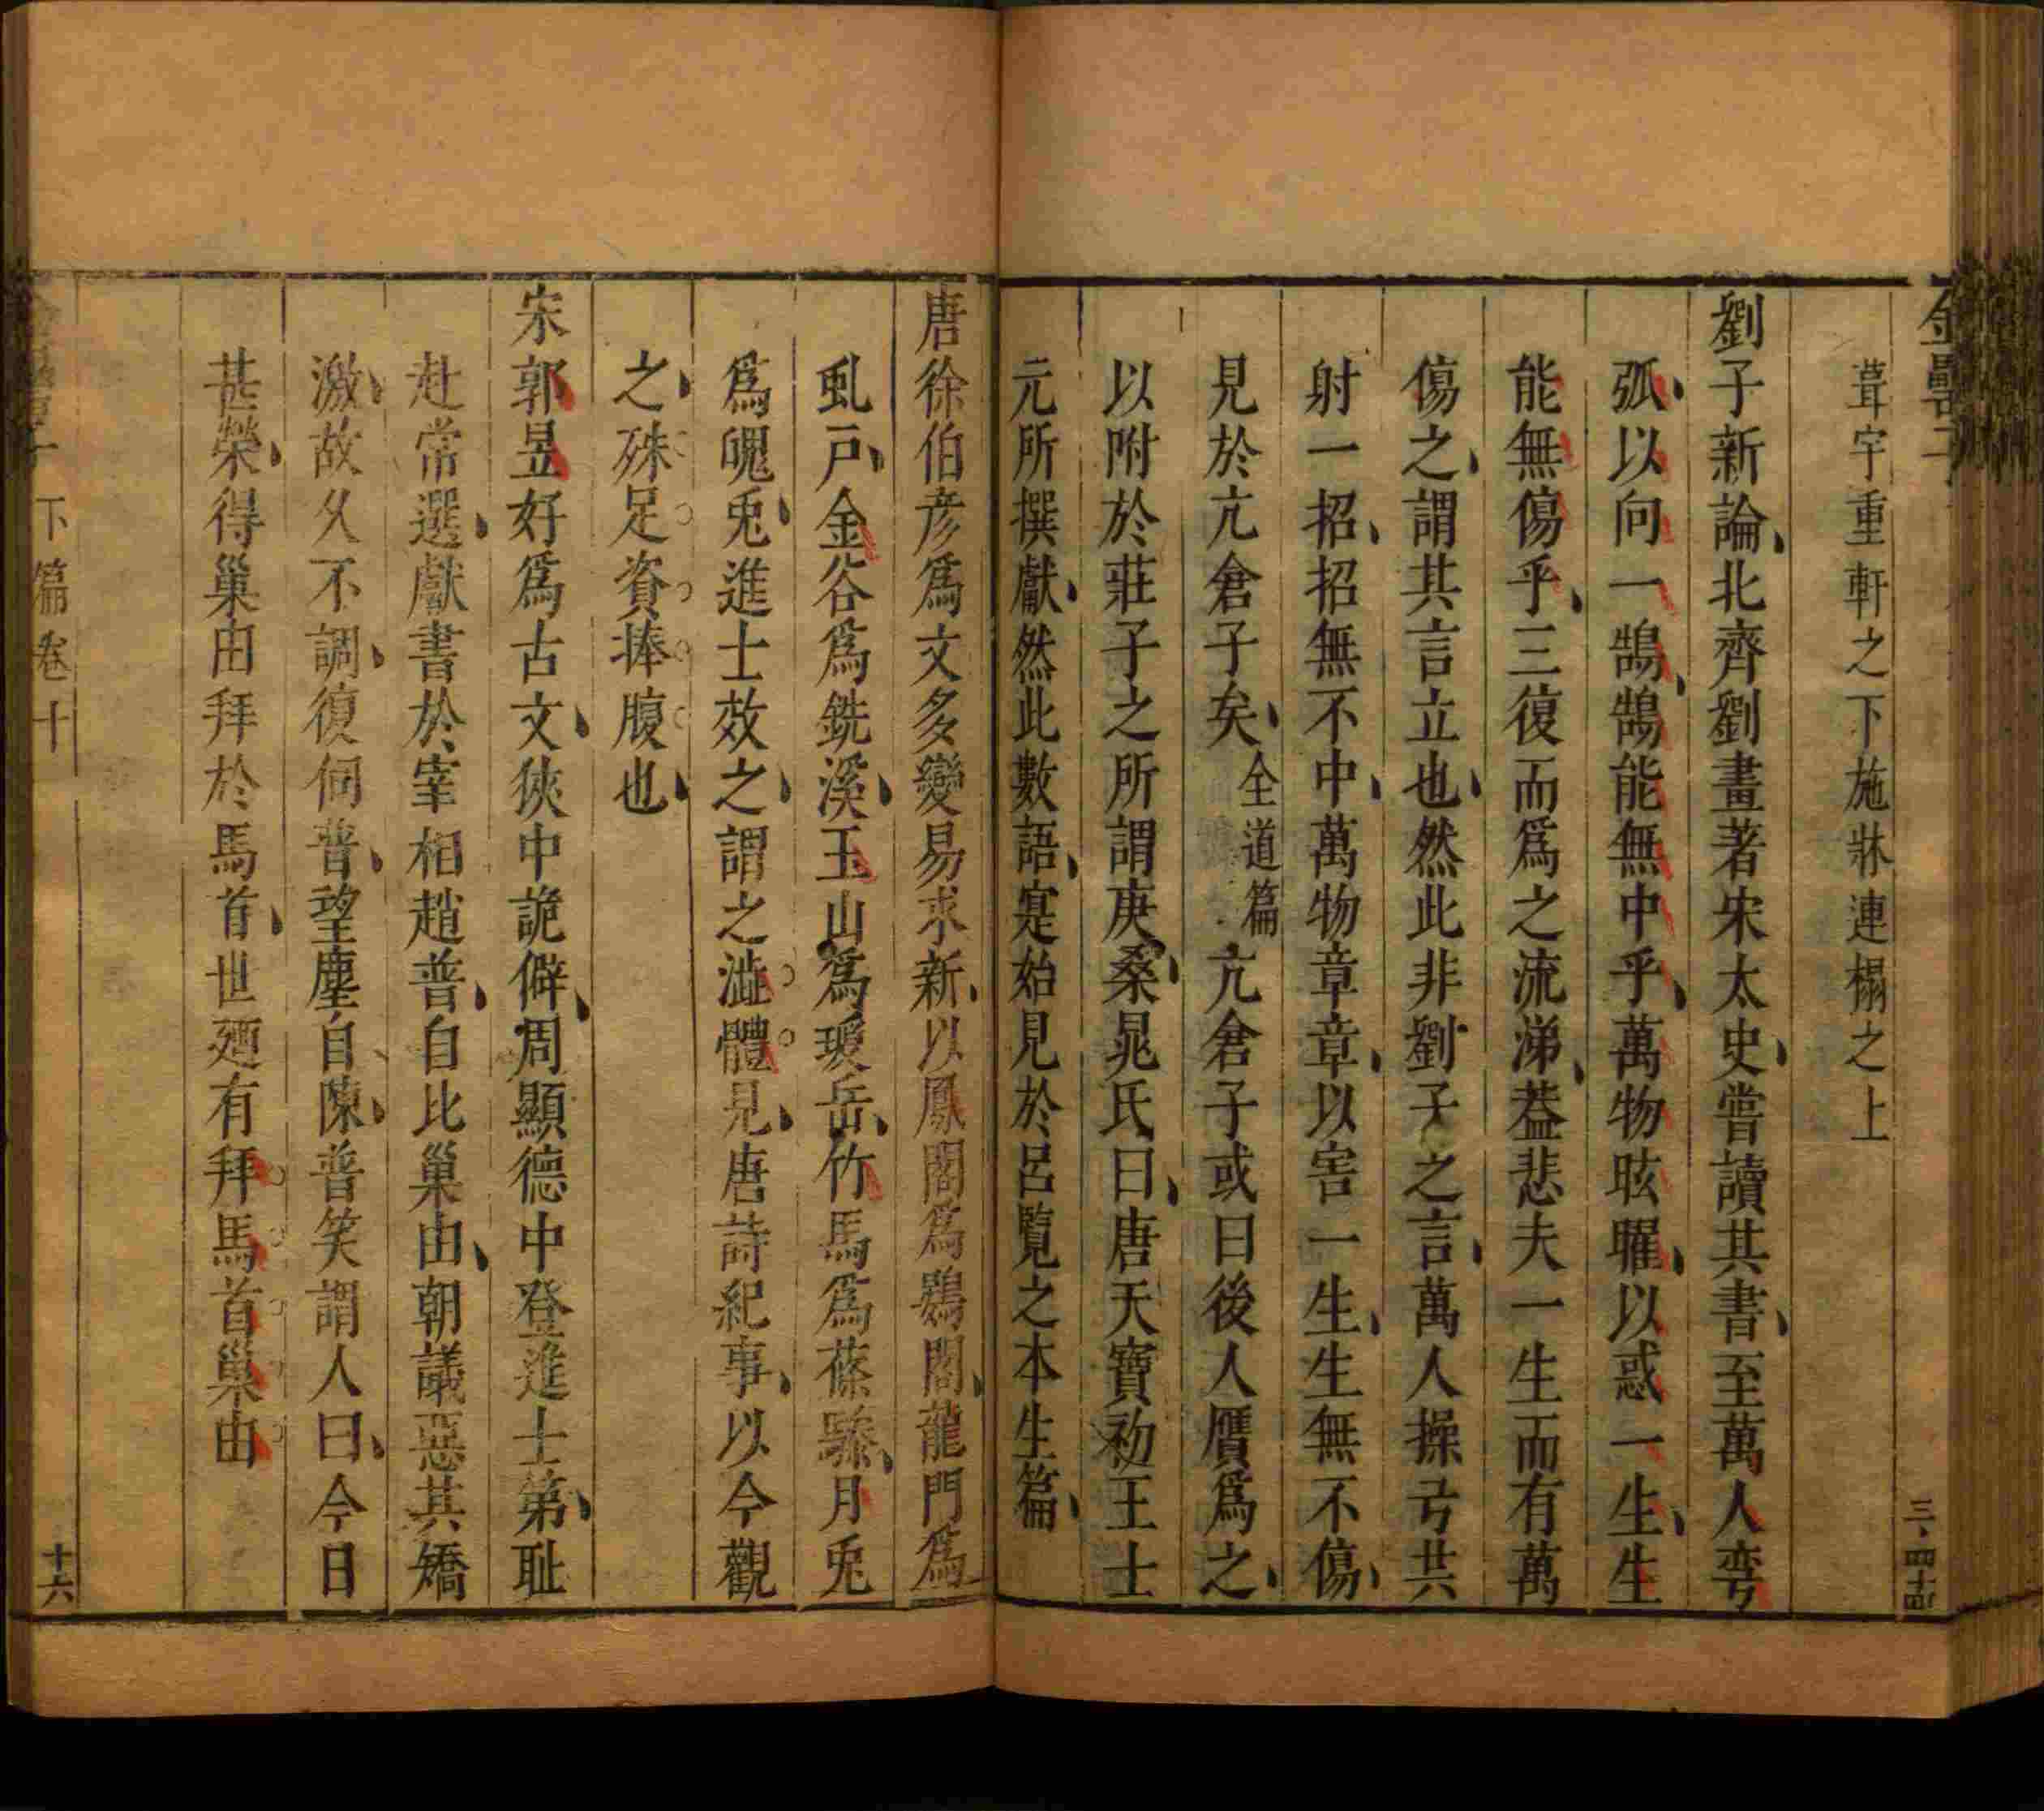 金罍子
三・四十函
葺宇重軒之下施牀連榻之上
劉子新論北齊劉晝著宋太史嘗讀其書至萬人彎
弧以向一鵠鵠能無中乎萬物眩曜以惑一生生
能無傷乎三復而爲之流涕葢悲夫一生而有萬
傷之謂其言立也然此非劉子之言萬人操弓共
射一招招無不中萬物章章以害一生生無不傷
見於亢倉子矣全道篇亢倉子或曰後人贋爲之
以附於莊子之所謂庚桑晁氏曰唐天寶初王士
元所撰獻然此數語寔始見於呂覽之本生篇
唐徐伯彦爲文多變易求新以鳳閣爲鶠閣龍門爲
虬戸金谷爲銑溪玉山爲瑗岳竹馬爲篠驂月兎
爲魄兎進士效之謂之澁體見唐詩紀事以今觀
之殊足資捧腹也
宋郭昱好爲古文狹中詭僻周顯德中登進士第耻
赴常選獻書於宰相趙普自比巢由朝議惡其矯
激故久不調復伺普望塵自陳普笑謂人曰今日
甚榮得巢由拜於馬首世廼有拜馬首巢由
下篇卷十
十六